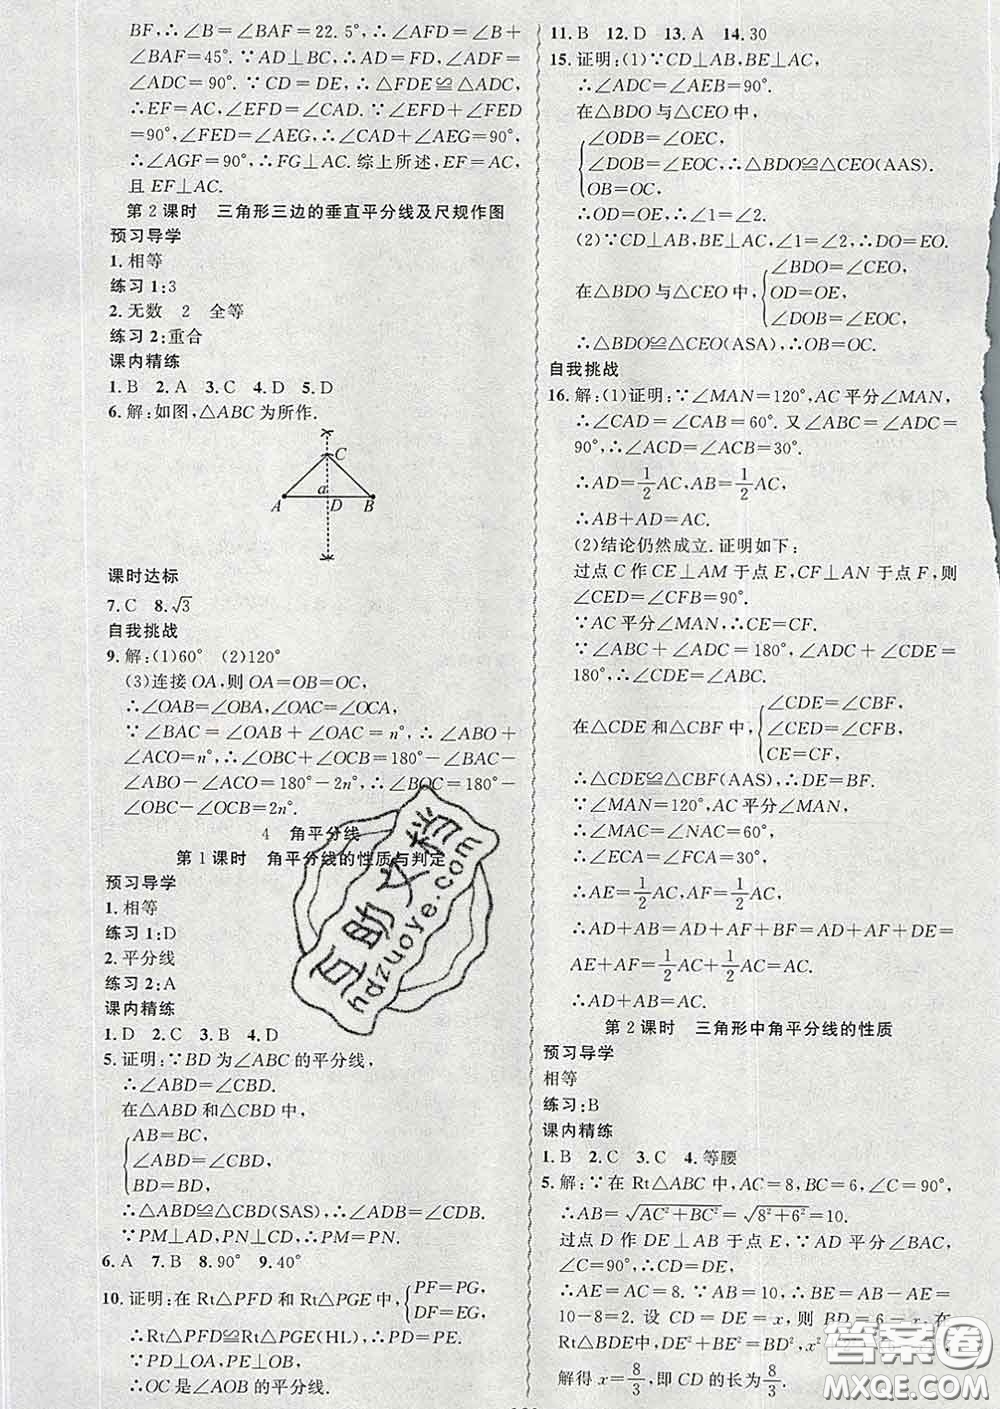 BF,∴∠B=∠BAF=22.5°,∴∠AFD=∠B+
∠BAF=45°.∵AD⊥BC,∴AD=FD,∠ADF=
∠ADC=90°.∵CD=DE,∴△FDE≌△ADC,
∴EF=AC,∠EFD=∠CAD.∵∠EFD+∠FED
=90°,∠FED=∠AEG,∴∠CAD+∠AEG=90°.
∴∠AGF=90°,∴FG⊥AC.综上所述,EF=AC,
且EF⊥AC.
第2课时 三角形三边的垂直平分线及尺规作图
预习导学
1.相等
练习1:3
2.无数 2 全等
练习2:重合
课内精练
1.B 2.A 3.C 4.D 5.D
6.解:如图,△ABC为所作.
C
a
A D B
课时达标
7.C 8.√3
自我挑战
9.解:(1)60° (2)120°
(3)连接OA,则OA=OB=OC,
∴∠OAB=∠OBA,∠OAC=∠OCA,
∵∠BAC=∠OAB+∠OAC=n°,∴∠ABO+
∠ACO=n°,∴∠OBC+∠OCB=180°-∠BAC-
∠ABO-∠ACO=180°-2n°,∴∠BOC=180°-
∠OBC-∠OCB=2n°.
4 角平分线
第1课时 角平分线的性质与判定
预习导学
1.相等
练习1:D
2.平分线
练习2:A
课内精练
1.D 2.C 3.B 4.D
5.证明:∵BD为∠ABC的平分线,
∴∠ABD=∠CBD.
在△ABD和△CBD中,
AB=BC,
∠ABD=∠CBD,
BD=BD,
∴△ABD≌△CBD(SAS),∴∠ADB=∠CDB.
∵PM⊥AD,PN⊥CD,∴PM=PN.
6.A 7.B 8.90° 9.40°
10.证明:在Rt△PFD和Rt△PGE中,{PF=PG,
DF=EG,
∴Rt△PFD≌Rt△PGE(HL),∴PD=PE.
∵PD⊥OA,PE⊥OB,
∴OC是∠AOB的平分线.
11.B 12.D 13.A 14.30
15.证明:(1)∵CD⊥AB,BE⊥AC,
∴∠ADC=∠AEB=90°.
在△BDO与△CEO中,
∠ODB=∠OEC,
∠DOB=∠EOC,∴△BDO≌△CEO(AAS).
OB=OC,
∴OD=OE,∴∠1=∠2.
(2)∵CD⊥AB,BE⊥AC,∠1=∠2,∴DO=EO.
∠BDO=∠CEO,
在△BDO与△CEO中,{OD=OE,
∠DOB=∠EOC,
∴△BDO≌△CEO(ASA),∴OB=OC.
自我挑战
16.解:(1)证明:∵∠MAN=120°,AC平分∠MAN,
∴∠CAD=∠CAB=60°.又∠ABC=∠ADC=
90°,∴∠ACD=∠ACB=30°.
∴AD=1/2AC,AB=1/2AC.
∴AB+AD=AC.
(2)结论仍然成立.证明如下:
过点C作CE⊥AM于点E,CF⊥AN于点F,则
∠CED=∠CFB=90°.
∵AC平分∠MAN,∴CE=CF.
∵∠ABC+∠ADC=180°,∠ADC+∠CDE=
180°,∴∠CDE=∠ABC.
∠CDE=∠CBF,
在△CDE和△CBF中,{∠CED=∠CFB,
CE=CF,
∴△CDE≌△CBF(AAS),∴DE=BF.
∵∠MAN=120°,AC平分∠MAN,
∴∠MAC=∠NAC=60°,
∴∠ECA=∠FCA=30°.
∴AE=1/2AC,AF=1/2AC,
∴AD+AB=AD+AF+BF=AD+AF+DE=
AE+AF=1/2AC+1/2AC=AC,
∴AD+AB=AC.
第2课时 三角形中角平分线的性质
预习导学
相等
练习:B
课内精练
1.B 2.C 3.C 4.等腰
5.解:∵在Rt△ABC中,AC=8,BC=6,∠C=90°,
∴AB=√(AC²+BC²)=√(8²+6²)=10.
过点D作DE⊥AB于点E,∵AD平分∠BAC,
∠C=90°,∴CD=DE,∴Rt△ACD≌Rt△AED,
∴AE=AC=8.∵AB=10,∴BE=AB-AE=
10-8=2.设CD=DE=x,则BD=6-x,在
Rt△BDE中,DE²+BE²=BD²,x²+2²=(6-x)²,
解得x=8/3,即CD的长为8/3.
互助文档
hdzuoye.com
答案圈
MXQE.COM